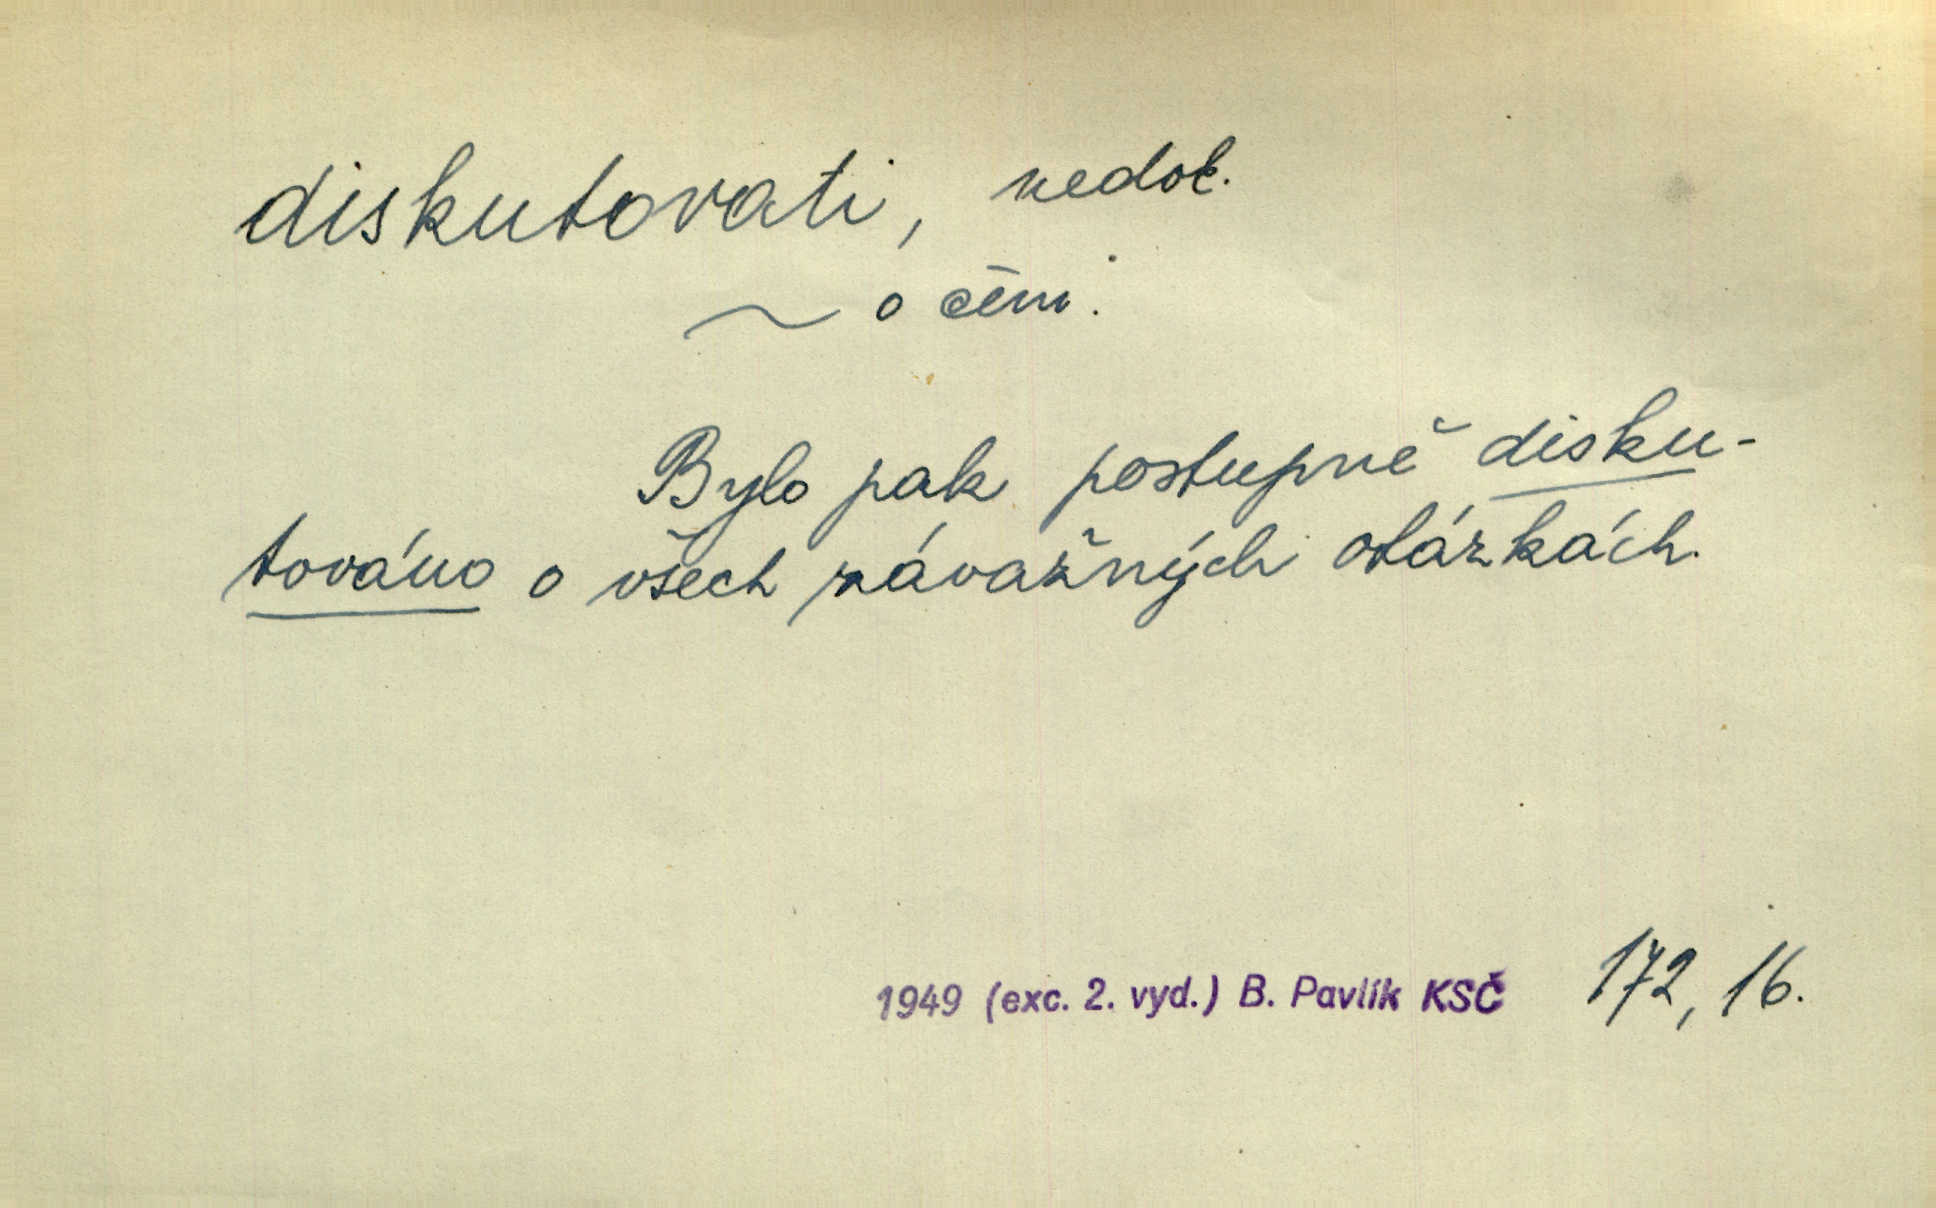 diskutovati, nedok.
~ o čem.
Bylo pak postupně disku-
továno o všech závažných otázkách.
1949 (exc. 2. vyd.) B. Pavlík KSČ 172, 16.